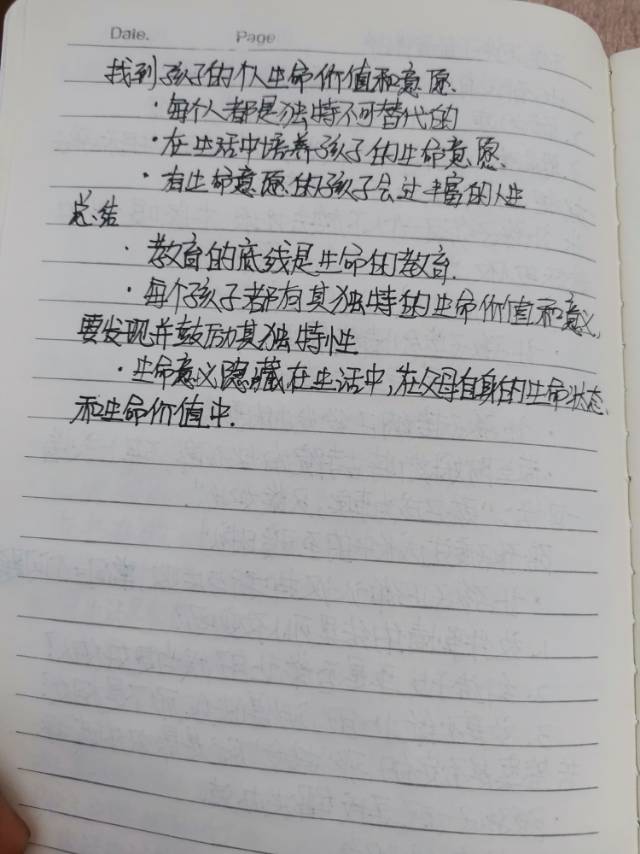 Date. Page
找到孩子的个人生命价值和意愿.
·每个人都是独特不可替代的
·在生活中培养孩子的生命意愿.
·有生命意愿的孩子会过丰富的人生
总结
·教育的底线是生命的教育.
·每个孩子都有其独特的生命价值和意义,
要发现并鼓励其独特性
·生命意义隐藏在生活中,在父母自身的生命状态
和生命价值中.